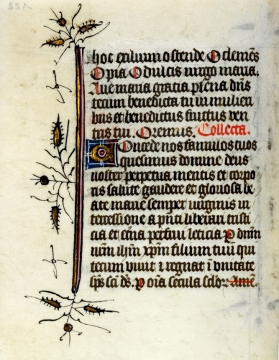 hoc exilium ostende O clemēs
O pia O dulcis uirgo maria.
Aue maria gratia plena dn̄s
tecum benedicta tu in mulieri
bus et benedictus fructus uen
tris tui. Oremus. Collecta.
Concede nos famulos tuos
quesumus domine deus
noster perpetua mentis et corpo
ris salute gaudere et gloriosa be
ate marie semper uirginis in
tercessione a p̄nti liberari tristi
cia et et̄na perfrui leticia P dn̄m
n̄rm ih̄m xp̄m filium tuū qui
tecum uiuit et regnat ī unitate
sp̄s sc̄i ds̄. p om̄ia secula sc̄lor. Amē.